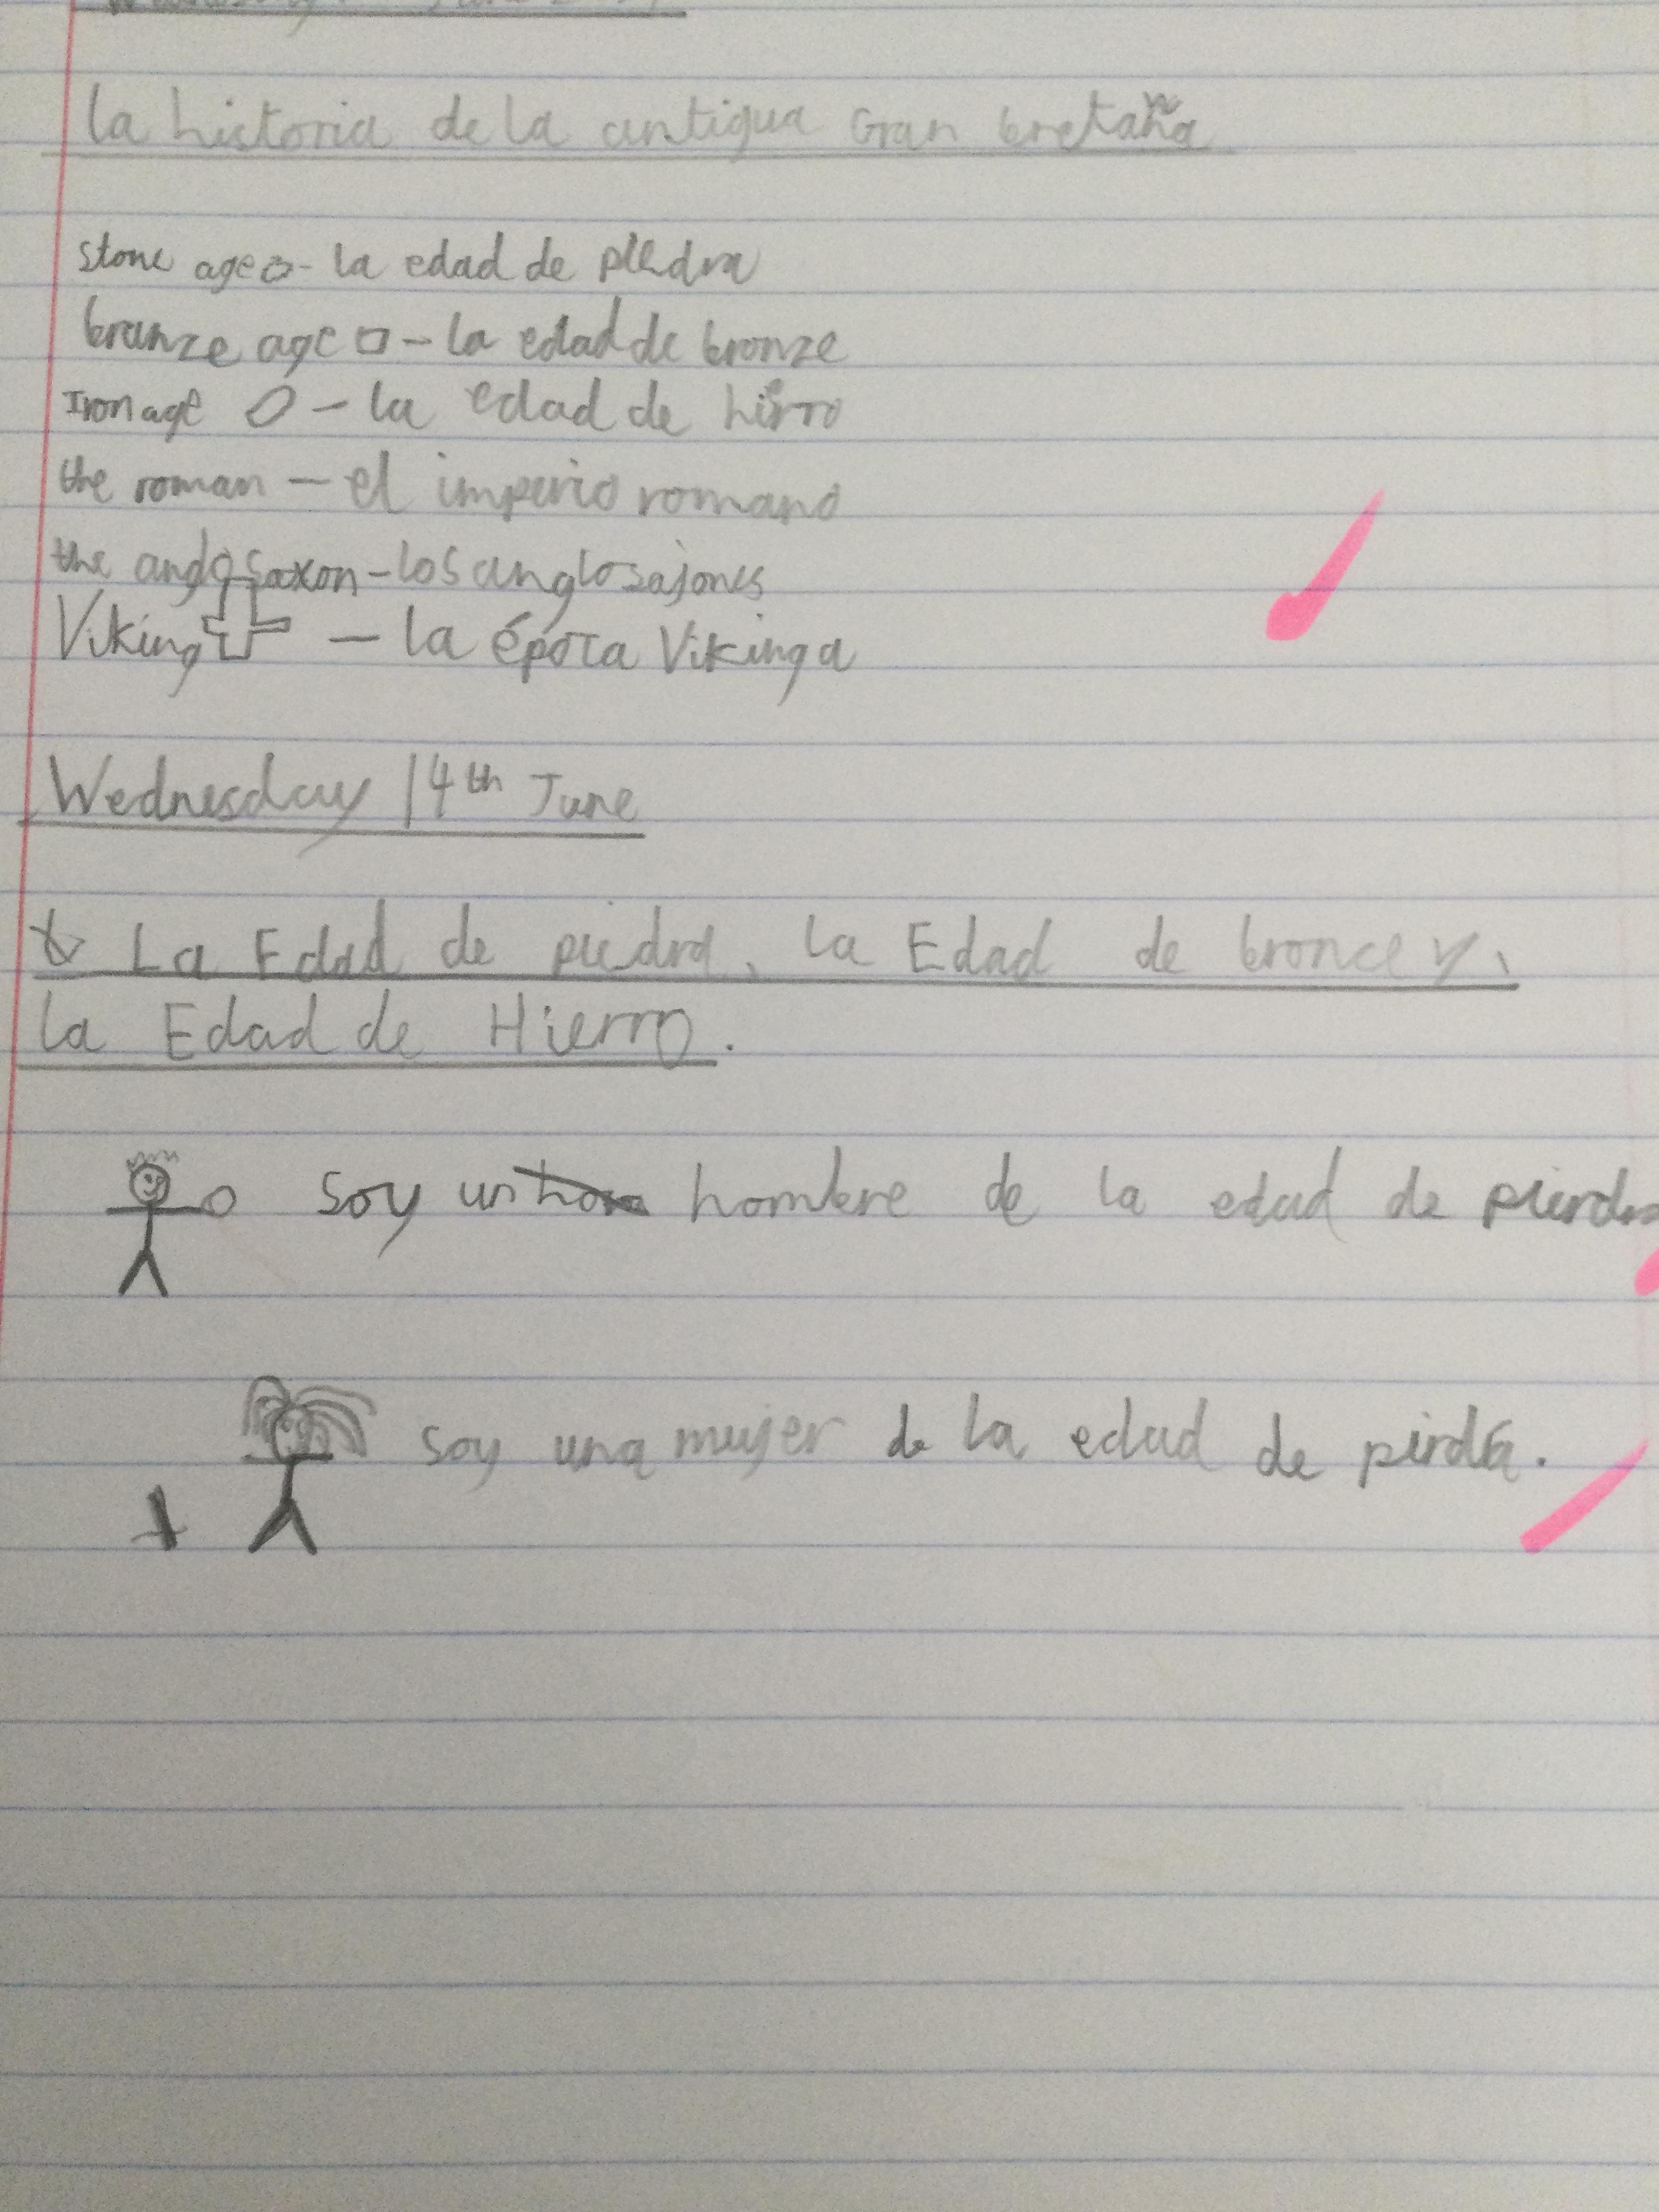 la historia de la antigua Gran bretaña
stone age - la edad de piedra
bronze age - la edad de bronze
Iron age - la edad de hierro
the roman - el imperio romano
the anglo saxon - los anglosajones
Viking - la época Vikinga
Wednesday 14th June
La Edad de piedra, la Edad de bronce y,
la Edad de Hierro.
Soy un hombre de la edad de pierdra
Soy una mujer de la edad de pirdra.